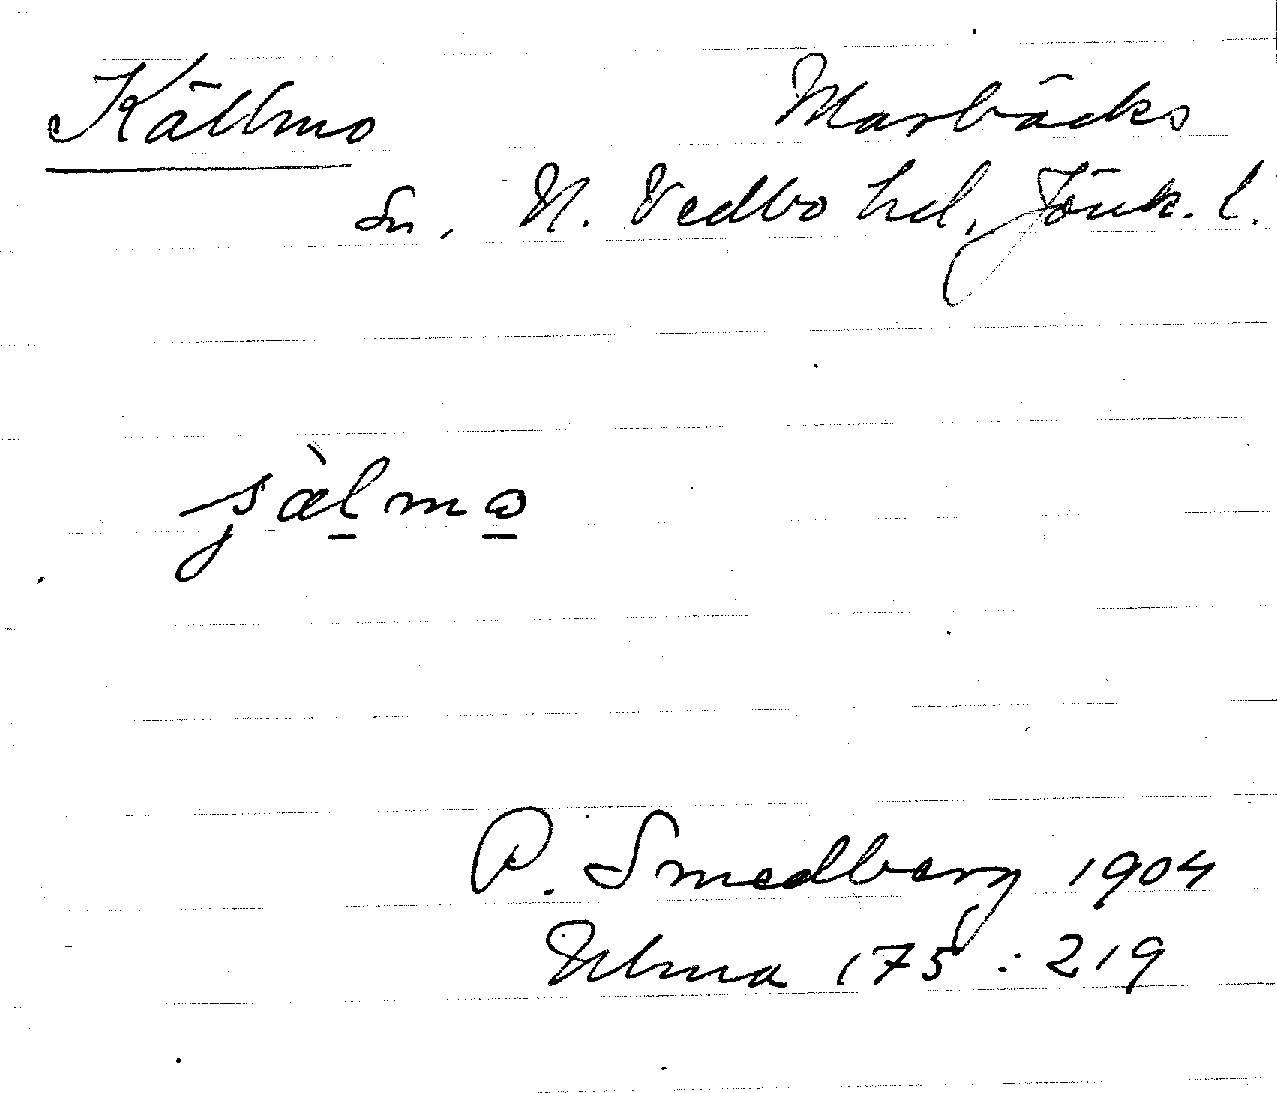 Källmo Marbäcks
sn, N. Vedbo hd, Jönk. l.
P. Smedberg 1904
Ulma 175:219